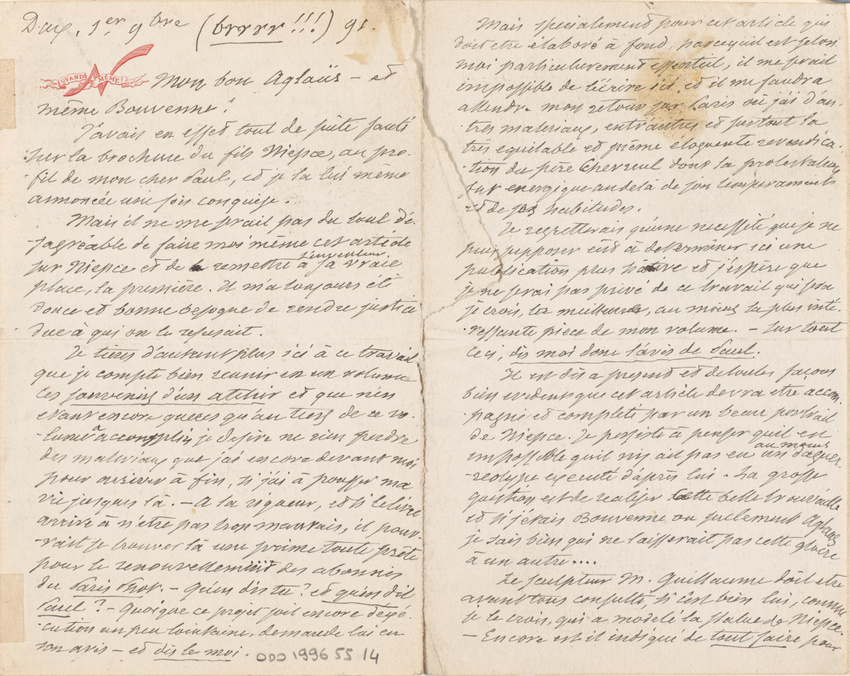 Dax, 1er 9bre (brrrr !!!) 91.
QUAND MÊME
Mon bon Aglaüs – et
même Bouvenne !
J'avais en effet tout de suite sauté
sur la brochure du fils Niepce, au pro-
fil de mon cher Paul, et je la lui même
annoncée une fois conquise.
Mais il ne me serait pas du tout dé-
sagréable de faire moi même cet article
sur Niepce et de remettre l'inventeur à sa vraie
place, la première. Il m'a toujours été
douce et bonne besogne de rendre justice
due à qui on le refusait.
Je tiens d'autant plus ici à ce travail
que je compte bien reunir en un volume
ces souvenirs d'un atelier et que n'en
etant encore guères qu'au tiers de ce vo-
lume à accomplir, je desire ne rien perdre
des materiaux que j'ai encore devant moi
pour arriver à fin, si j'ai à pousser ma
vie jusques là. – A la rigueur, et si le livre
arrive à n'être pas trop mauvais, il pour-
rait se trouver là une prime toute prête
pour le renouvellement des abonnés
du Paris Phot. – Qu'en dis tu ? et qu'en dit
Paul ? – Quoique ce projet soit encore d'exé-
cution un peu lointaine, demande lui en
son avis – et dis le moi.
ODO 1996 55 14
Mais specialement pour cet article qui
doit être élaboré à fond, parcequ'il est selon
moi particulierement essentiel, il me serait
impossible de l'écrire ici, et il me faudra
attendre mon retour sur Paris où j'ai d'au-
tres materiaux, entr'autres et surtout la
très equitable et même éloquente revendica-
tion du père Chevreul dont la protestation
fut energique au delà de son temperament
et de ses habitudes.
Je regretterais qu'une necessité que je ne
puis supposer eût à determiner ici une
publication plus hative et j'espère que
je ne serai pas privé de ce travail qui sera
je crois, la meilleure, au moins la plus inte-
ressante pièce de mon volume. – Sur tout
ceci, dis moi donc l'avis de Paul.
Il est dès a present et de toutes façons
bien evident que cet article devra être accom-
pagné et completé par un beau portrait
de Niepce. Je persiste à penser qu'il est
impossible qu'il n'y ait pas eu au moins un daguer-
reotype executé d'après lui. – La grosse
question est de realiser cette belle trouvaille
et si j'etais Bouvenne ou seulement Aglaüs
je sais bien qui ne laisserait pas cette gloire
à un autre....
Le sculpteur M. Guillaume doit etre
avant tous consulté, si c'est bien lui, comme
je le crois, qui a modelé la statue de Niepce.
– Encore est il indiqué de tout faire pour